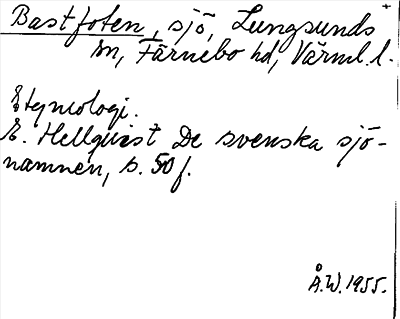 Bastfoten, sjö, Lungsunds
sn, Färnebo hd, Värml. l.
Etymologi.
E. Hellquist De svenska sjö-
namnen, s. 50 f.
Å.W. 1955.